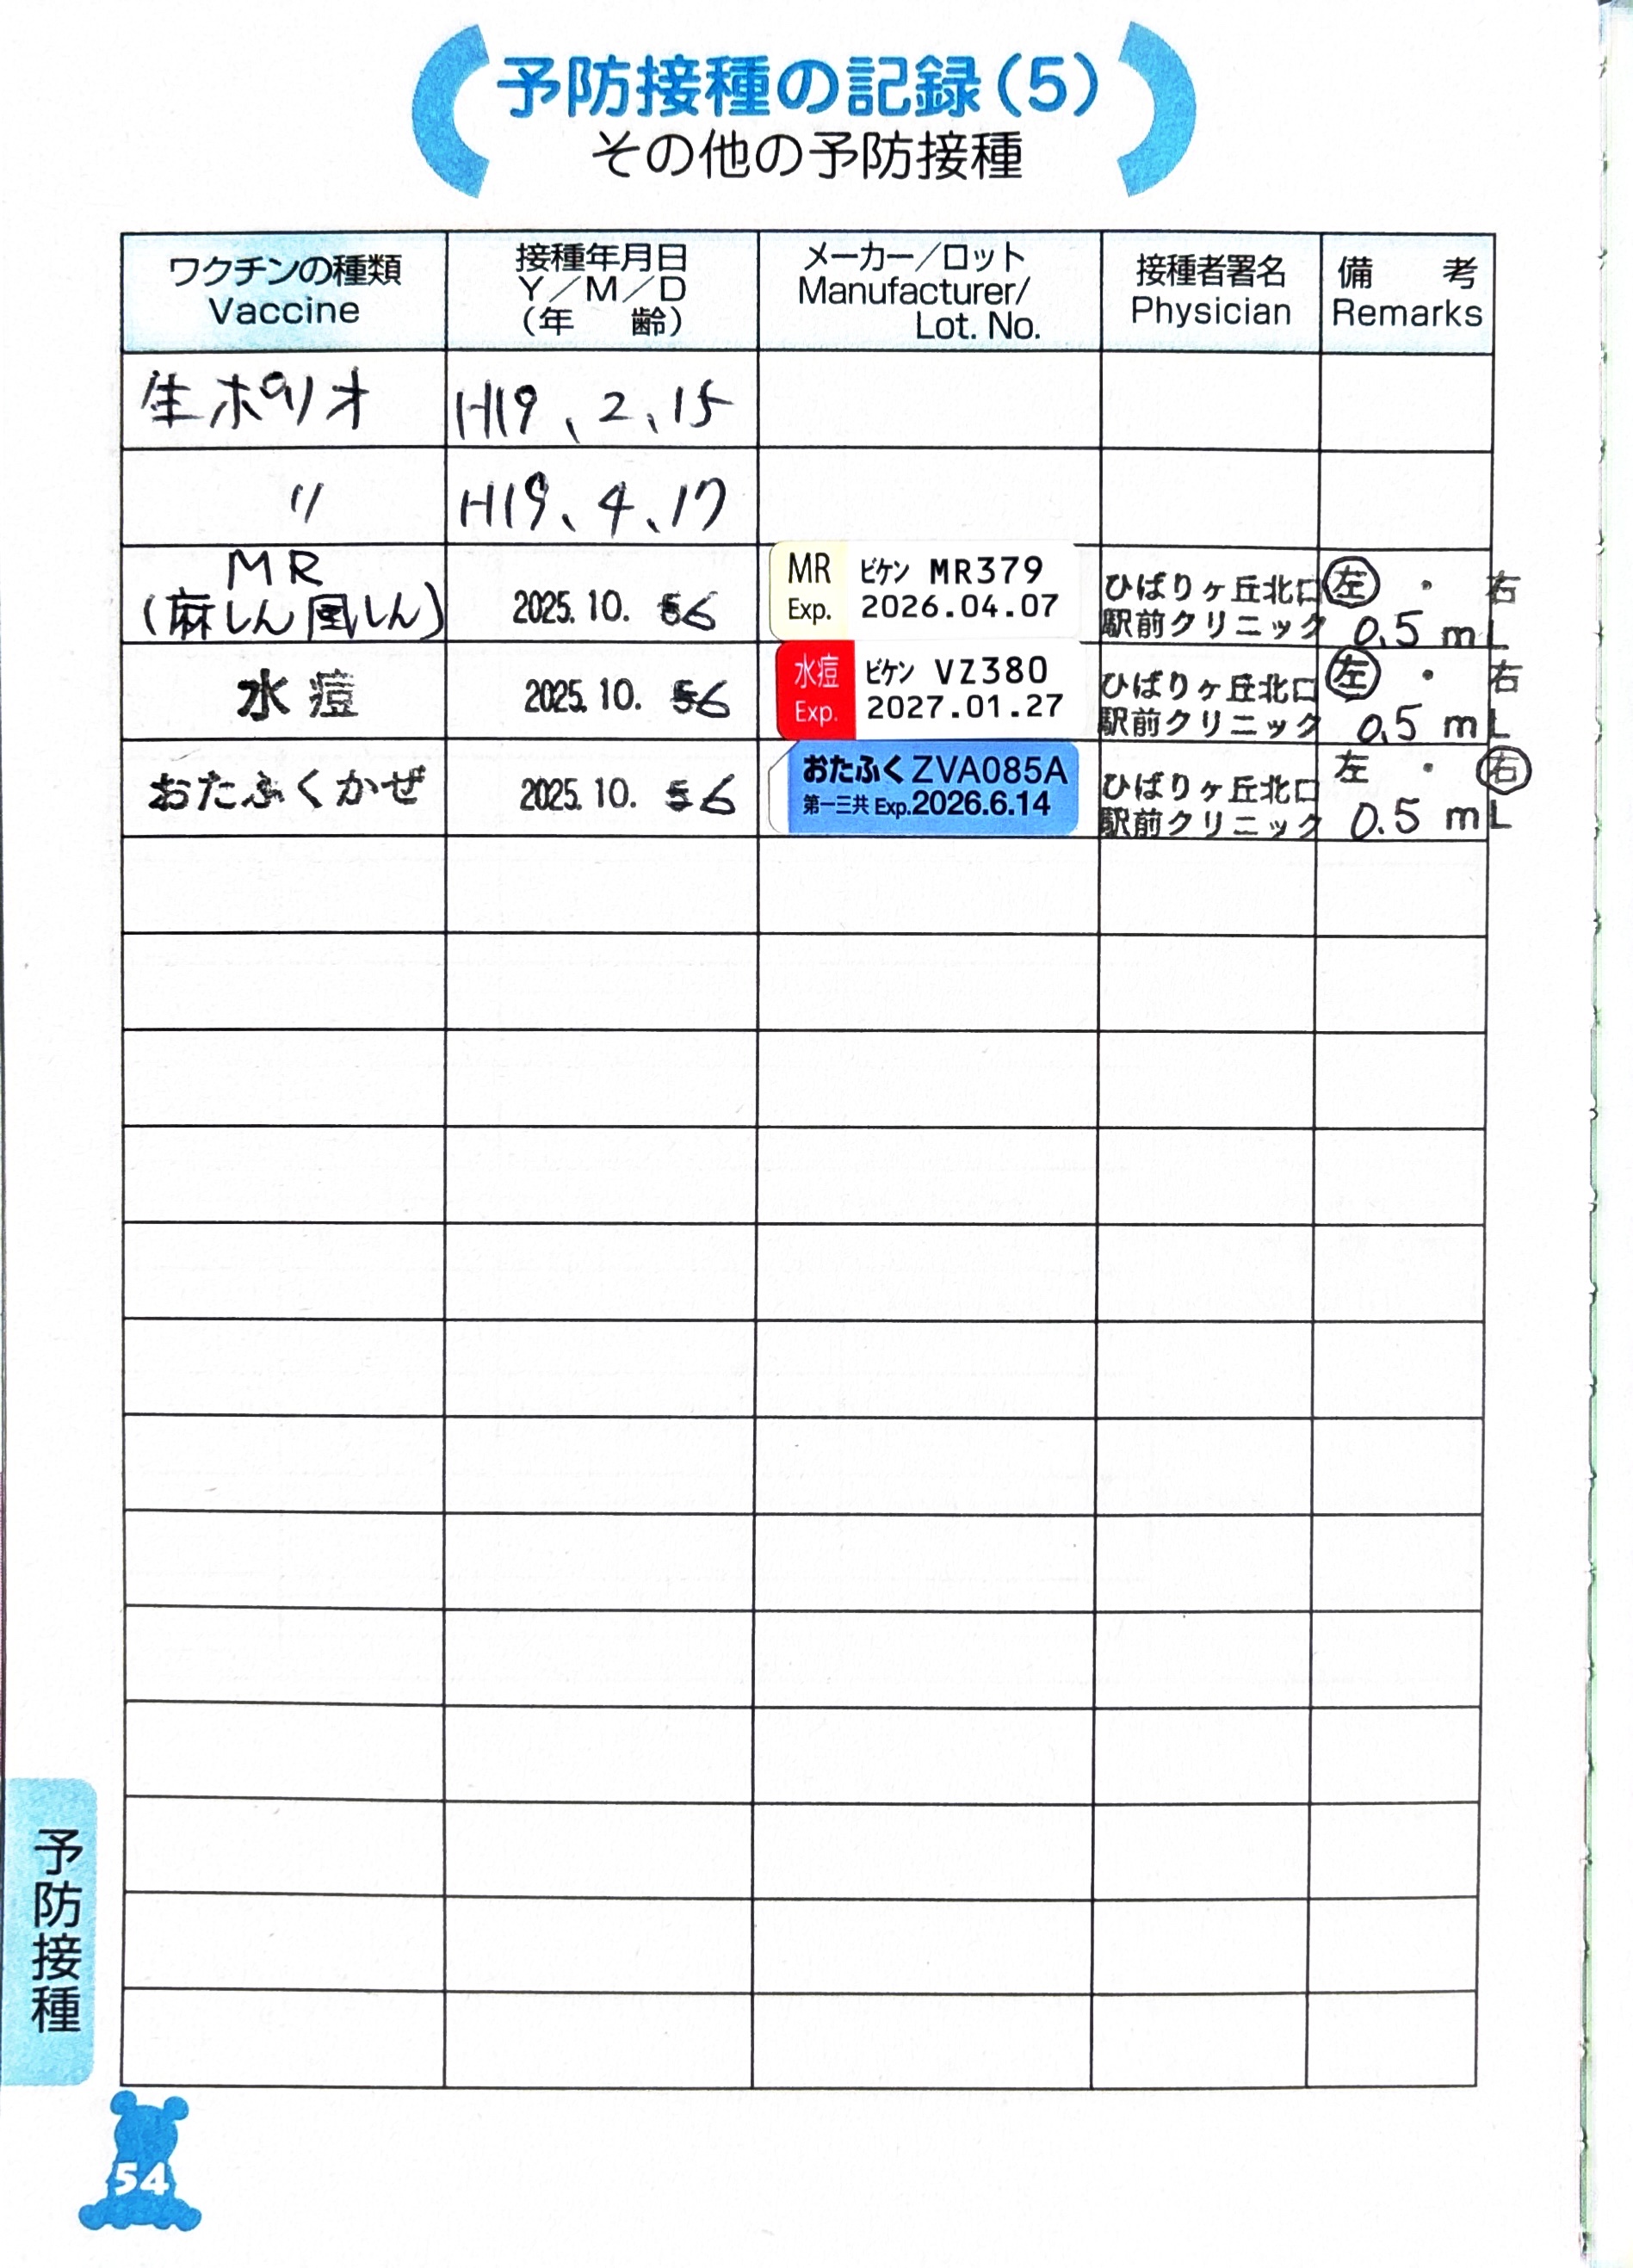 予防接種の記録(5)
その他の予防接種
ワクチンの種類
Vaccine
接種年月日
Y/M/D
(年 齢)
メーカー/ロット
Manufacturer/
Lot. No.
接種者署名
Physician
備 考
Remarks
生ポリオ
H19、2、15
〃
H19、4、17
MR
(麻しん風しん)
2025.10. 6
MR ビケン MR379
Exp. 2026.04.07
ひばりヶ丘北口
駅前クリニック
左 ・ 右
0.5 mL
水痘
2025.10. 6
水痘 ビケン VZ380
Exp. 2027.01.27
ひばりヶ丘北口
駅前クリニック
左 ・ 右
0.5 mL
おたふくかぜ
2025.10. 6
おたふく ZVA085A
第一三共 Exp.2026.6.14
ひばりヶ丘北口
駅前クリニック
左 ・ 右
0.5 mL
予防接種
54